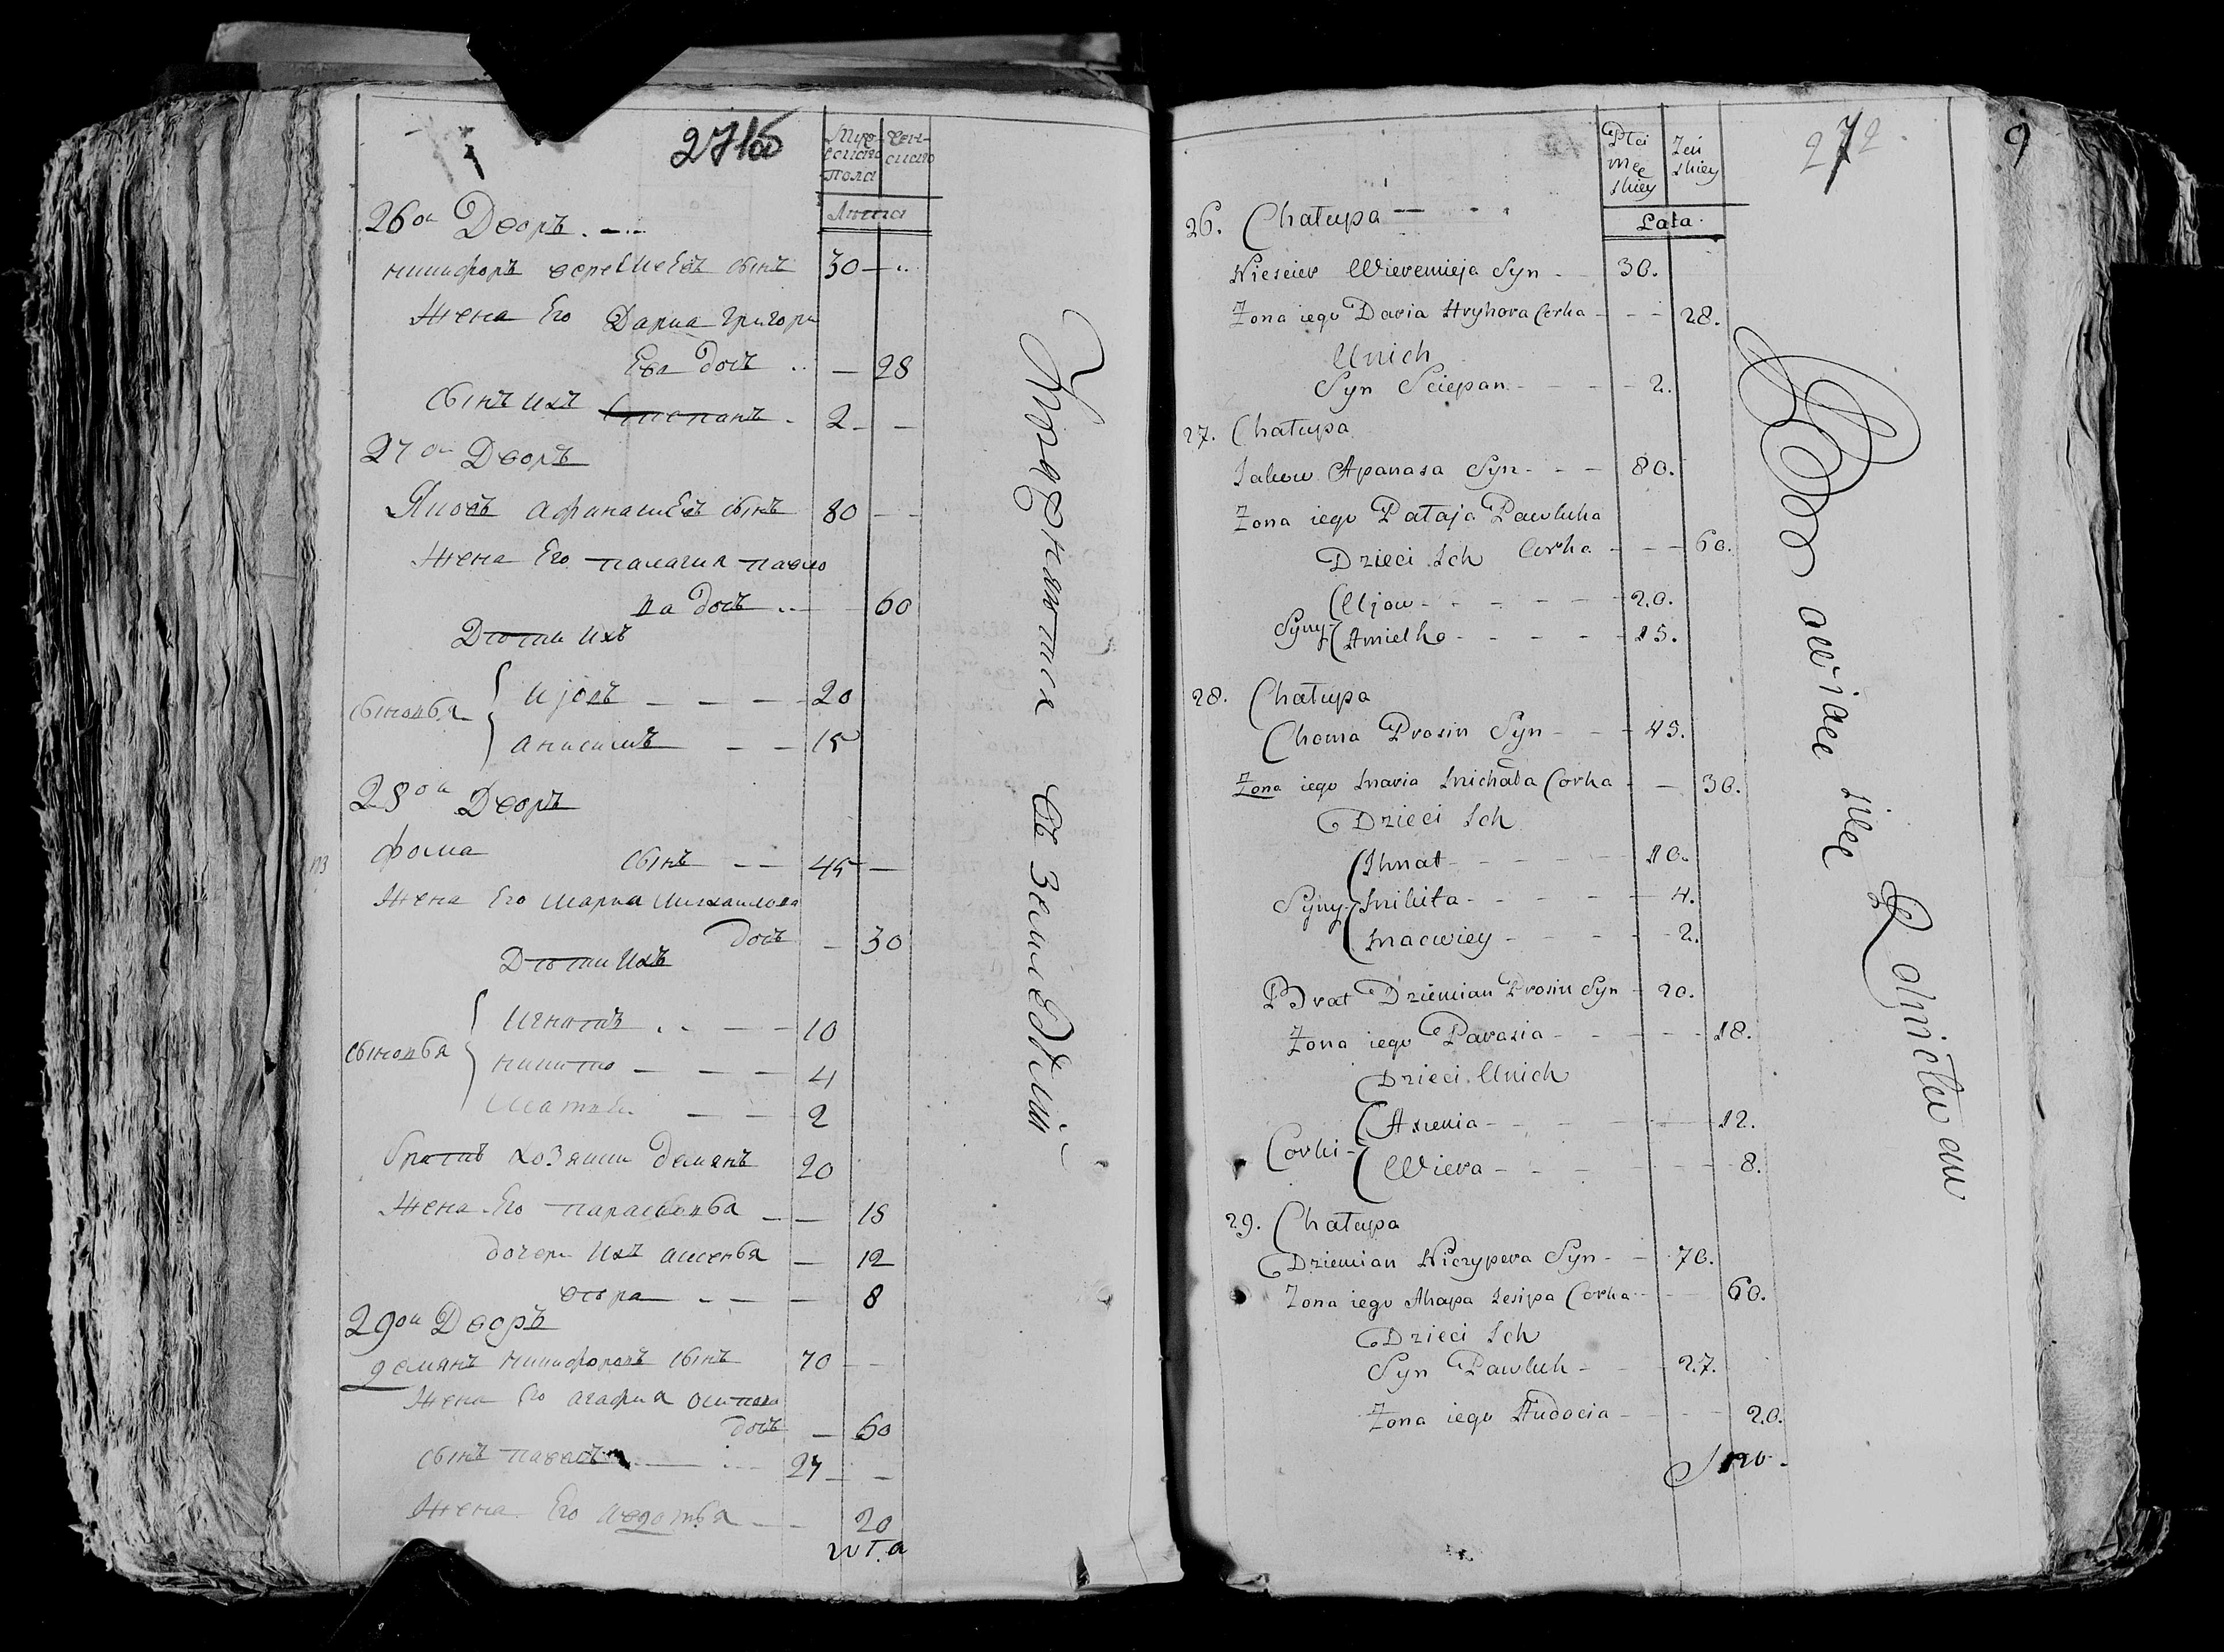 Муже-
скаго
пола
Жен-
скаго
Лѣта
26ой Дворъ
никифоръ веремиевъ сынъ 30
Жена Его Дариа Григори
Ева дочь 28
Сынъ ихъ Степанъ 2
27ой Дворъ
Яковъ афанасиевъ сынъ 80
Жена Его палагия павло
ва дочь 60
Дѣти ихъ
сыновья
иовъ 20
анисимъ 15
28ой Дворъ
фома сынъ 45
Жена Его мариа михаилова
дочь 30
Дѣти ихъ
сыновья
игнатъ 10
никита 4
матвей 2
братъ хозяина демянъ 20
Жена Его парасковья 18
дочери ихъ аксенья 12
вѣра 8
29ой Дворъ
демянъ никифоровъ сынъ 70
Жена Его агафия осипова
дочь 60
сынъ павелъ 27
Жена Его авдотья 20
Кормятся
Съ земледелия
272
9
Płci
męe
skiey
Zen
skiey
Lata
26. Chałupa
Nicicier Wieremieja Syn 30.
Zona iego Daria Hryhora Corka 28.
Unich
Syn Sciepan 2.
27. Chałupa
Jakow Apanasa Syn 80.
Zona iego Pałaja Pawluka
Dzieci Ich Corka 60.
Syny
Ujow 20.
Amielko 15.
28. Chałupa
Choma Prosin Syn 45.
Zona iego Maria Michała Corka 30.
Dzieci Ich
Syny
Ihnat 10.
Mikita 4.
Macwiey 2.
Brat Dziemian Prosin Syn 20.
Zona iego Parasia 18.
Dzieci Unich
Corki
Axienia 12.
Wiera 8.
29. Chałupa
Dziemian Niczypera Syn 70.
Zona iego Ahapa Jesipa Corka 60.
Dzieci Ich
Syn Pawluk 27.
Zona iego Audocia 20.
Rolnictwem